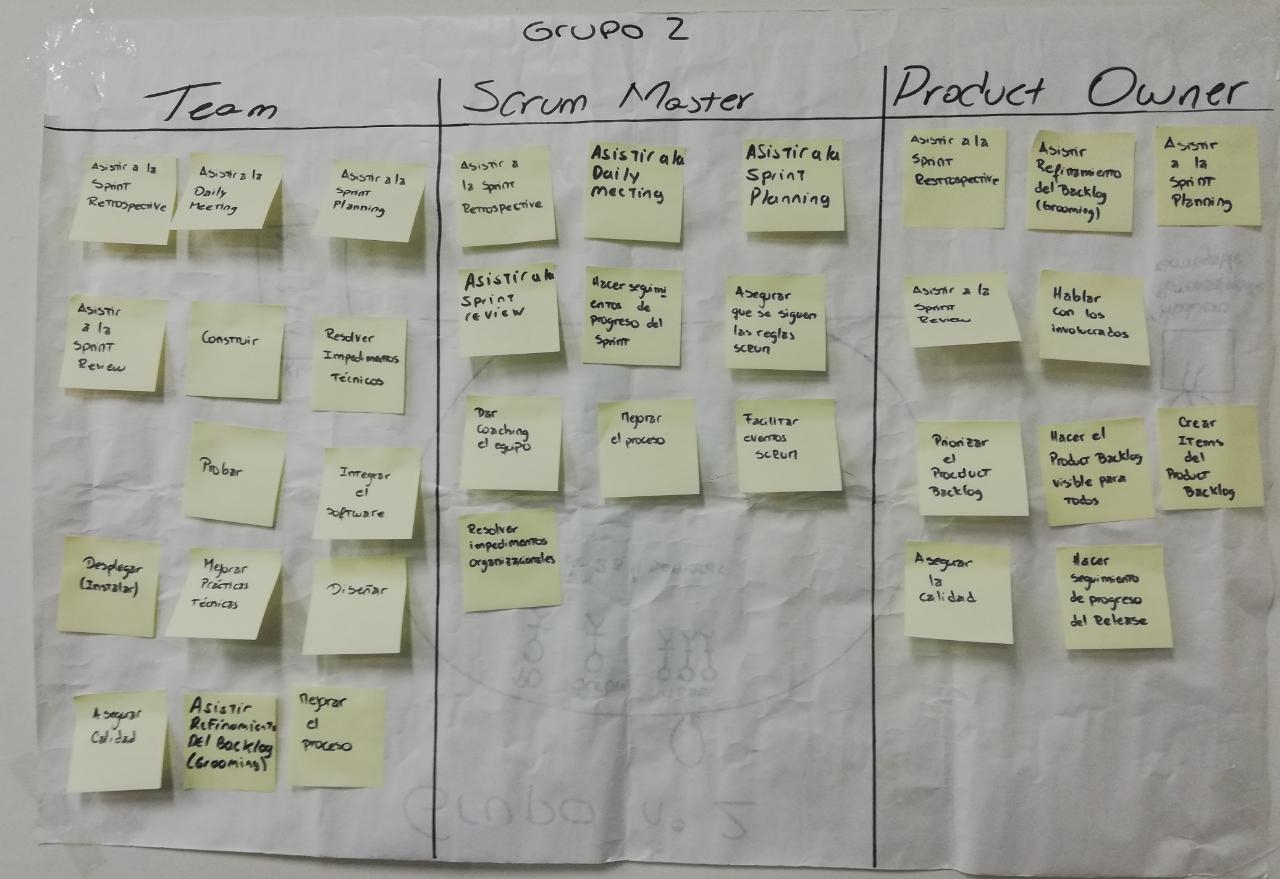 Grupo 2
Team
Scrum Master
Product Owner
Asistir a la
Sprint
Retrospective
Asistir a la
Daily
Meeting
Asistir a la
Sprint
Planning
Asistir
a la
Sprint
Review
Construir
Resolver
Impedimentos
Técnicos
Probar
Integrar
el
Software
Desplegar
(Instalar)
Mejorar
Prácticas
Técnicas
Diseñar
Asegurar
Calidad
Asistir
Refinamiento
Del Backlog
(Grooming)
Mejorar
el
proceso
Asistir a
la Sprint
Retrospective
Asistir a la
Daily
Meeting
Asistir a la
Sprint
Planning
Asistir a la
Sprint
review
Hacer seguimi
entos de
Progreso del
Sprint
Asegurar
que se siguen
las reglas
SCRUM
Dar
Coaching
el equipo
Mejorar
el proceso
Facilitar
eventos
SCRUM
Resolver
impedimentos
organizacionales
Asistir a la
Sprint
Restrospective
Asistir
Refinamiento
del Backlog
(Grooming)
Asistir
a la
Sprint
Planning
Asistir a la
Sprint
Review
Hablar
con los
involucrados
Priorizar
el
Product
Backlog
Hacer el
Product Backlog
visible para
Todos
Crear
Items
del
Product
Backlog
Asegurar
la
calidad
Hacer
seguimiento
de progreso
del Release
Grupo No. 2